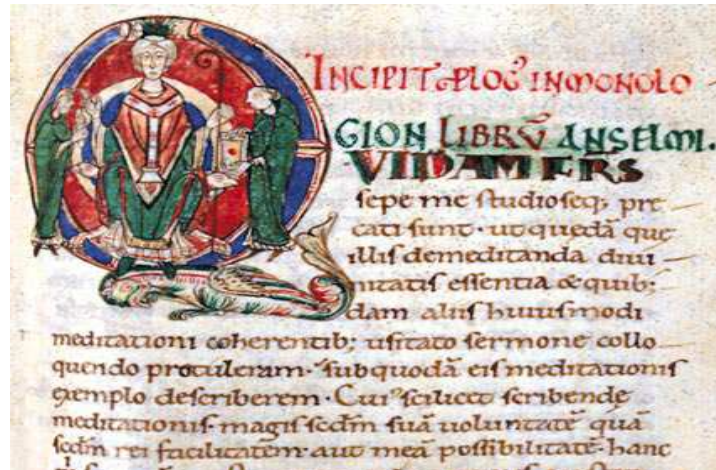 INCIPIT PLOG' IN MONOLO
GION LIBRŪ ANSELMI.
QVIDAM FRS
sepe me studioseq; pre
cati sunt. ut quedā que
illis demeditanda diui
nitatis essentia & quib;
dam aliis huiusmodi
meditationi coherentib; usitato sermone collo
quendo protuleram. sub quodā eis meditationis
exemplo describerem. Cui' scilicet scribendę
meditationis magis scdm suā uoluntatē quā
scdm rei facilitatem. aut meā possibilitatē. hanc